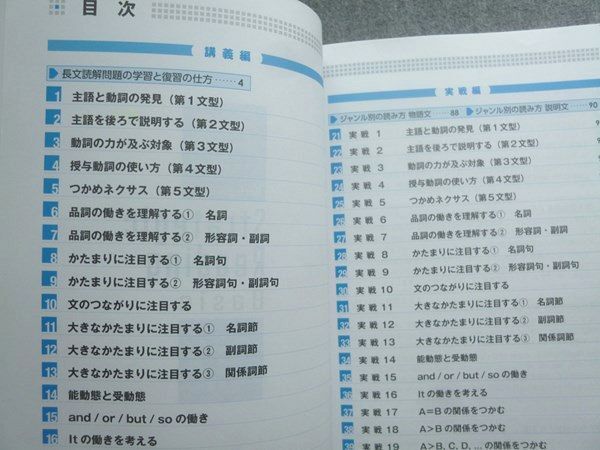 目次
講義編
長文読解問題の学習と復習の仕方……4
1 主語と動詞の発見（第1文型）
2 主語を後ろで説明する（第2文型）
3 動詞の力が及ぶ対象（第3文型）
4 授与動詞の使い方（第4文型）
5 つかめネクサス（第5文型）
6 品詞の働きを理解する① 名詞
7 品詞の働きを理解する② 形容詞・副詞
8 かたまりに注目する① 名詞句
9 かたまりに注目する② 形容詞句・副詞句
10 文のつながりに注目する
11 大きなかたまりに注目する① 名詞節
12 大きなかたまりに注目する② 副詞節
13 大きなかたまりに注目する③ 関係詞節
14 能動態と受動態
15 and / or / but / so の働き
16 Itの働きを考える
実戦編
ジャンル別の読み方 物語文……88 ジャンル別の読み方 説明文……90
21 実戦1 主語と動詞の発見（第1文型）
22 実戦2 主語を後ろで説明する（第2文型）
23 実戦3 動詞の力が及ぶ対象（第3文型）
24 実戦4 授与動詞の使い方（第4文型）
25 実戦5 つかめネクサス（第5文型）
26 実戦6 品詞の働きを理解する① 名詞
27 実戦7 品詞の働きを理解する② 形容詞・副詞
28 実戦8 かたまりに注目する① 名詞句
29 実戦9 かたまりに注目する② 形容詞句・副詞句
30 実戦10 文のつながりに注目する
31 実戦11 大きなかたまりに注目する① 名詞節
32 実戦12 大きなかたまりに注目する② 副詞節
33 実戦13 大きなかたまりに注目する③ 関係詞節
34 実戦14 能動態と受動態
35 実戦15 and / or / but / so の働き
36 実戦16 Itの働きを考える
37 実戦17 A=Bの関係をつかむ
38 実戦18 A>Bの関係をつかむ
39 実戦19 A>B, C, D, ...の関係をつかむ